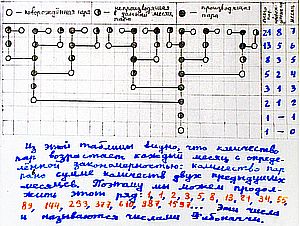 — новорождённая пара
— непроизводящая в данный месяц пара
— производящая пара
21 8 7
13 5 6
8 3 5
5 2 4
3 1 3
2 1 2
1 - 1
1 - 0
Из этой таблицы видно, что количество
пар возрастает каждый месяц с опреде-
лённой закономерностью: количество пар
равно сумме количеств двух предыдущих
месяцев. Поэтому мы можем продол-
жить этот ряд: 1, 1, 2, 3, 5, 8, 13, 21, 34, 55,
89, 144, 233, 377, 610, 987, 1597... Эти числа
и называются числами Фибоначчи.